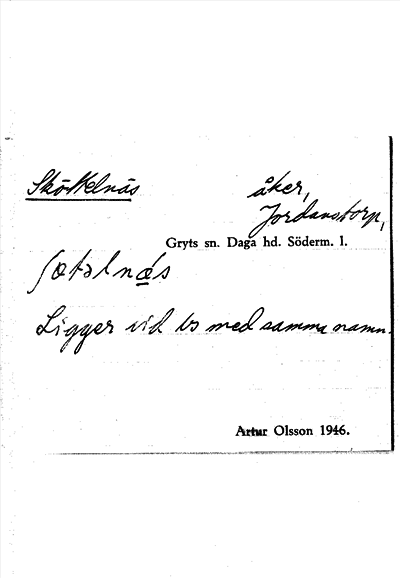 Sköttelnäs
åker,
Jordanstorp,
Gryts sn. Daga hd. Söderm. l.
ʃøtəlnä́s
Ligger vid ts med samma namn.
Artur Olsson 1946.